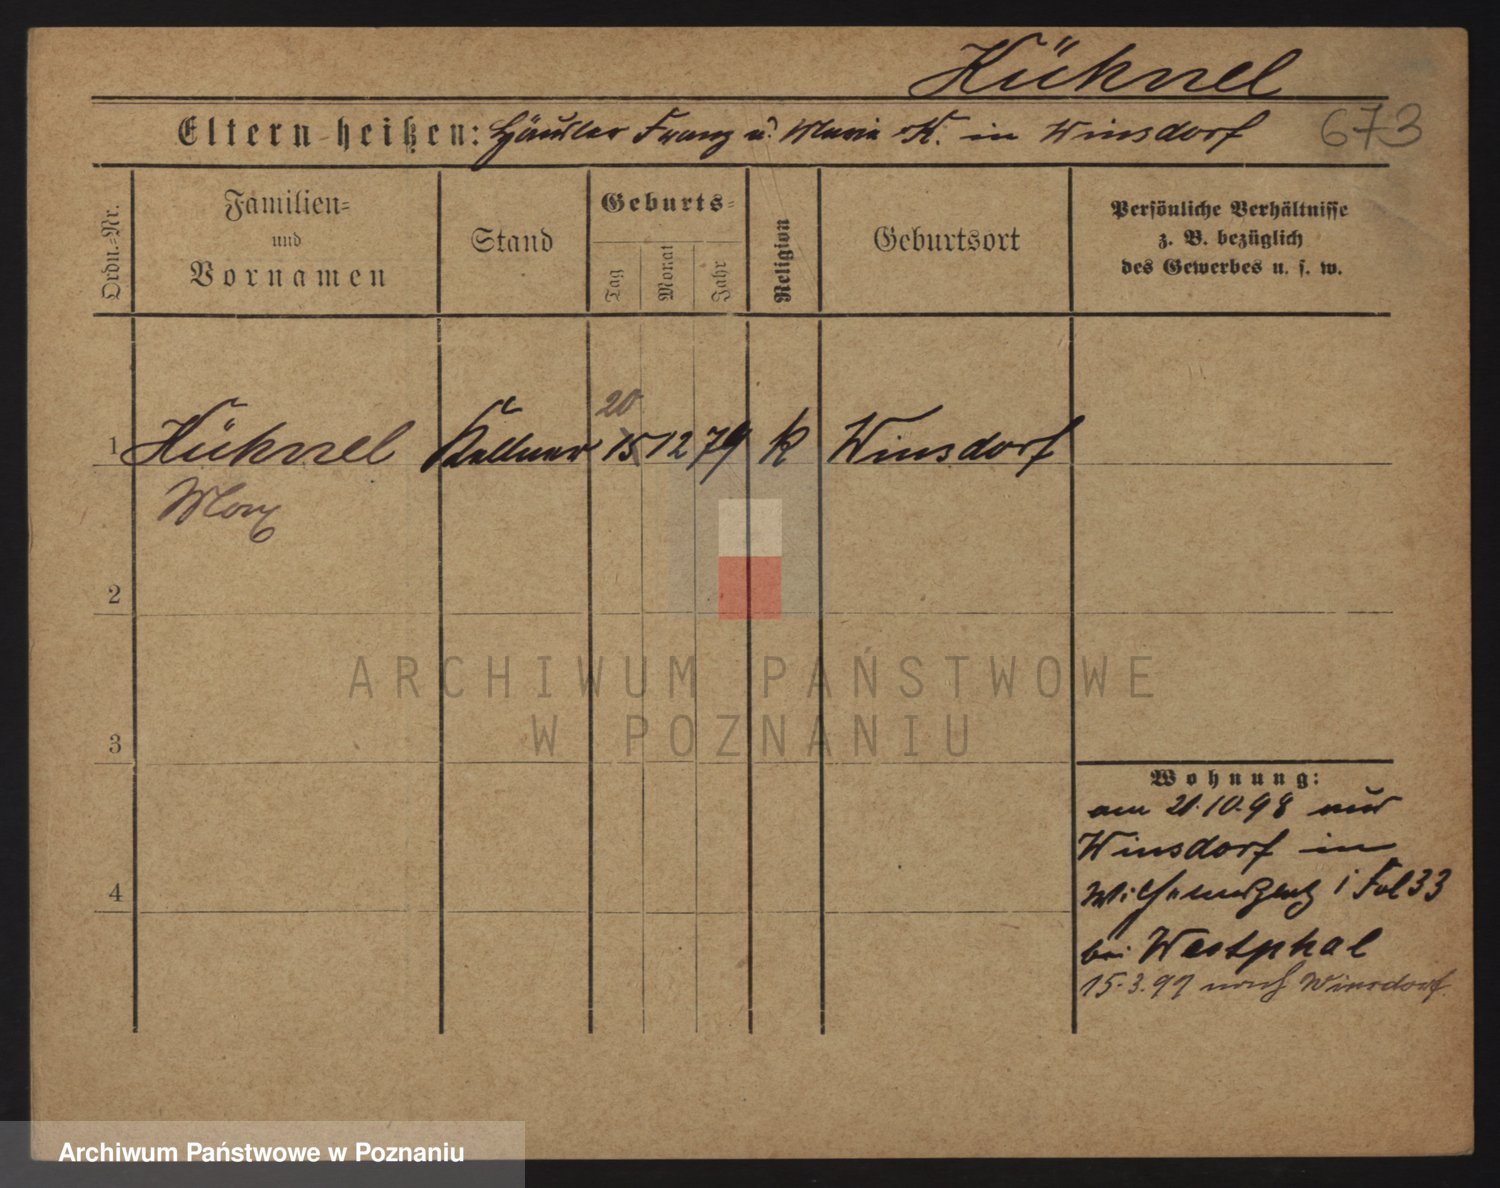 Kühnel
Eltern heißen: Häusler Franz u. Maria K. in Winsdorf
673
Ordn.-Nr.
Familien-
und
Vornamen
Stand
Geburts-
Tag
Monat
Jahr
Religion
Geburtsort
Persönliche Verhältnisse
z. B. bezüglich
des Gewerbes u. s. w.
20
1 Kühnel Kellner 15 12 79 K Winsdorf
Max
2
3
4
ARCHIWUM PAŃSTWOWE
W POZNANIU
Wohnung:
am 21.10.98 aus
Winsdorf in
33
bei Westphal
15.3.99 nach Winsdorf
Archiwum Państwowe w Poznaniu